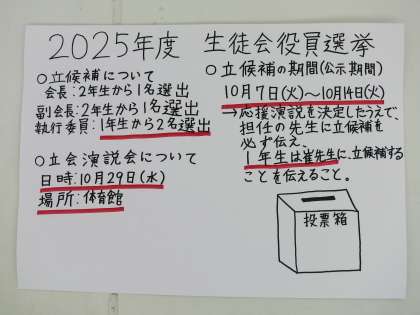 2025年度 生徒会役員選挙
○立候補について
会長:2年生から1名選出
副会長:2年生から1名選出
執行委員:1年生から2名選出
○立会演説会について
日時:10月29日(水)
場所:体育館
○立候補の期間(公示期間)
10月7日(火)～10月14日(火)
→応援演説を決定したうえで、
担任の先生に立候補を
必ず伝え、
1年生は崔先生に、立候補する
ことを伝えること。
投票箱